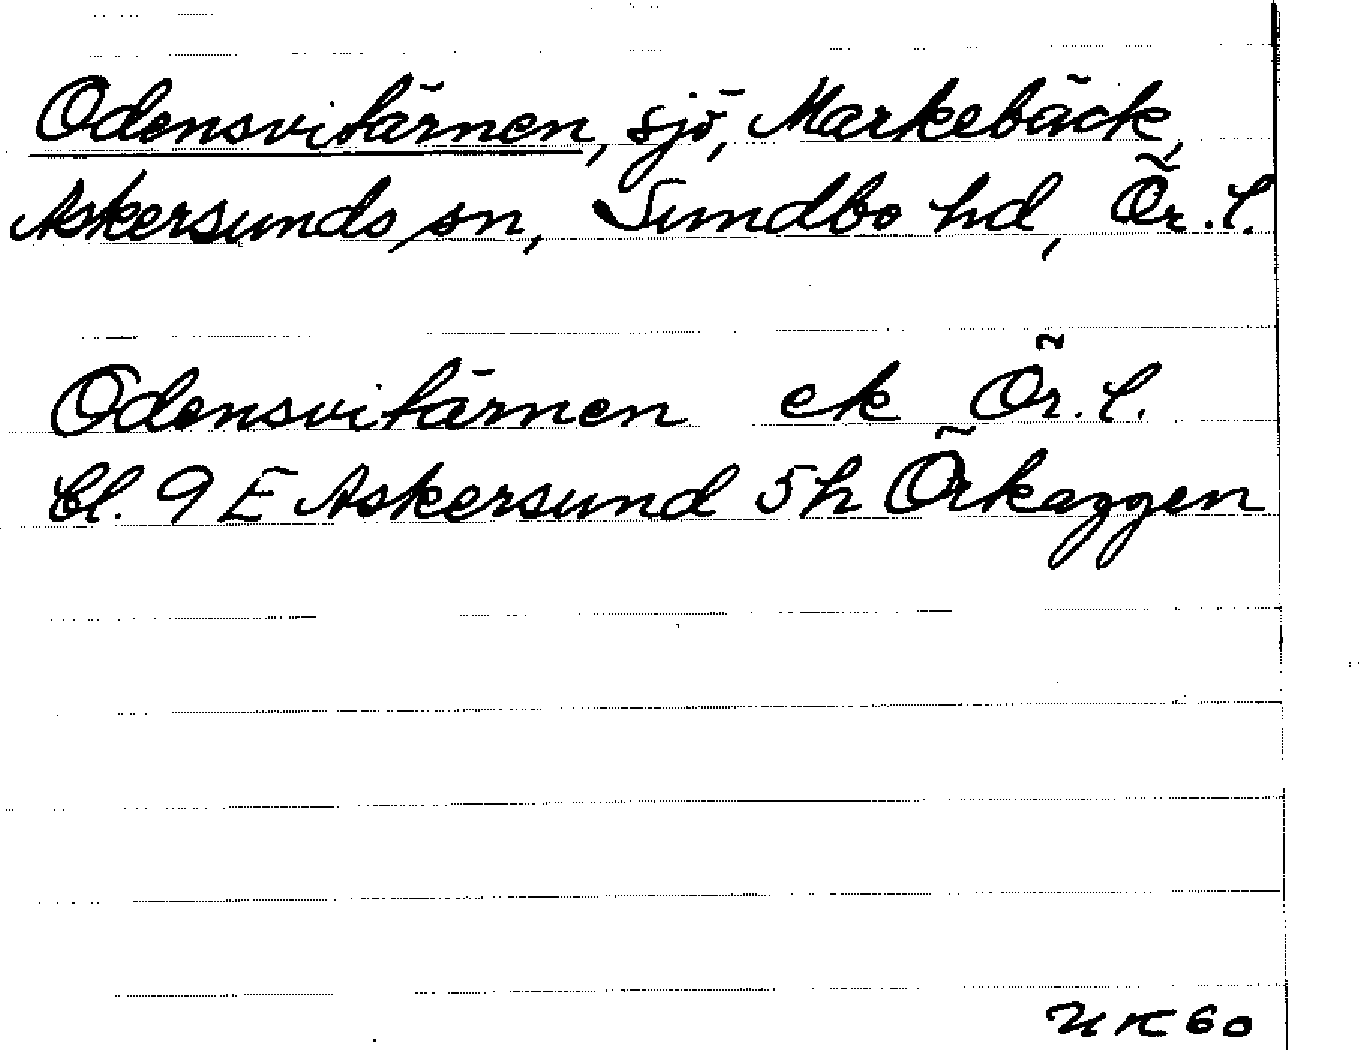 Odensvitärnen, sjö, Markebäck,
Askersunds sn, Sundbo hd, Ör. l.
Odensvitärnen ek Ör. l.
bl. 9 E Askersund 5h Örkaggen
UK60